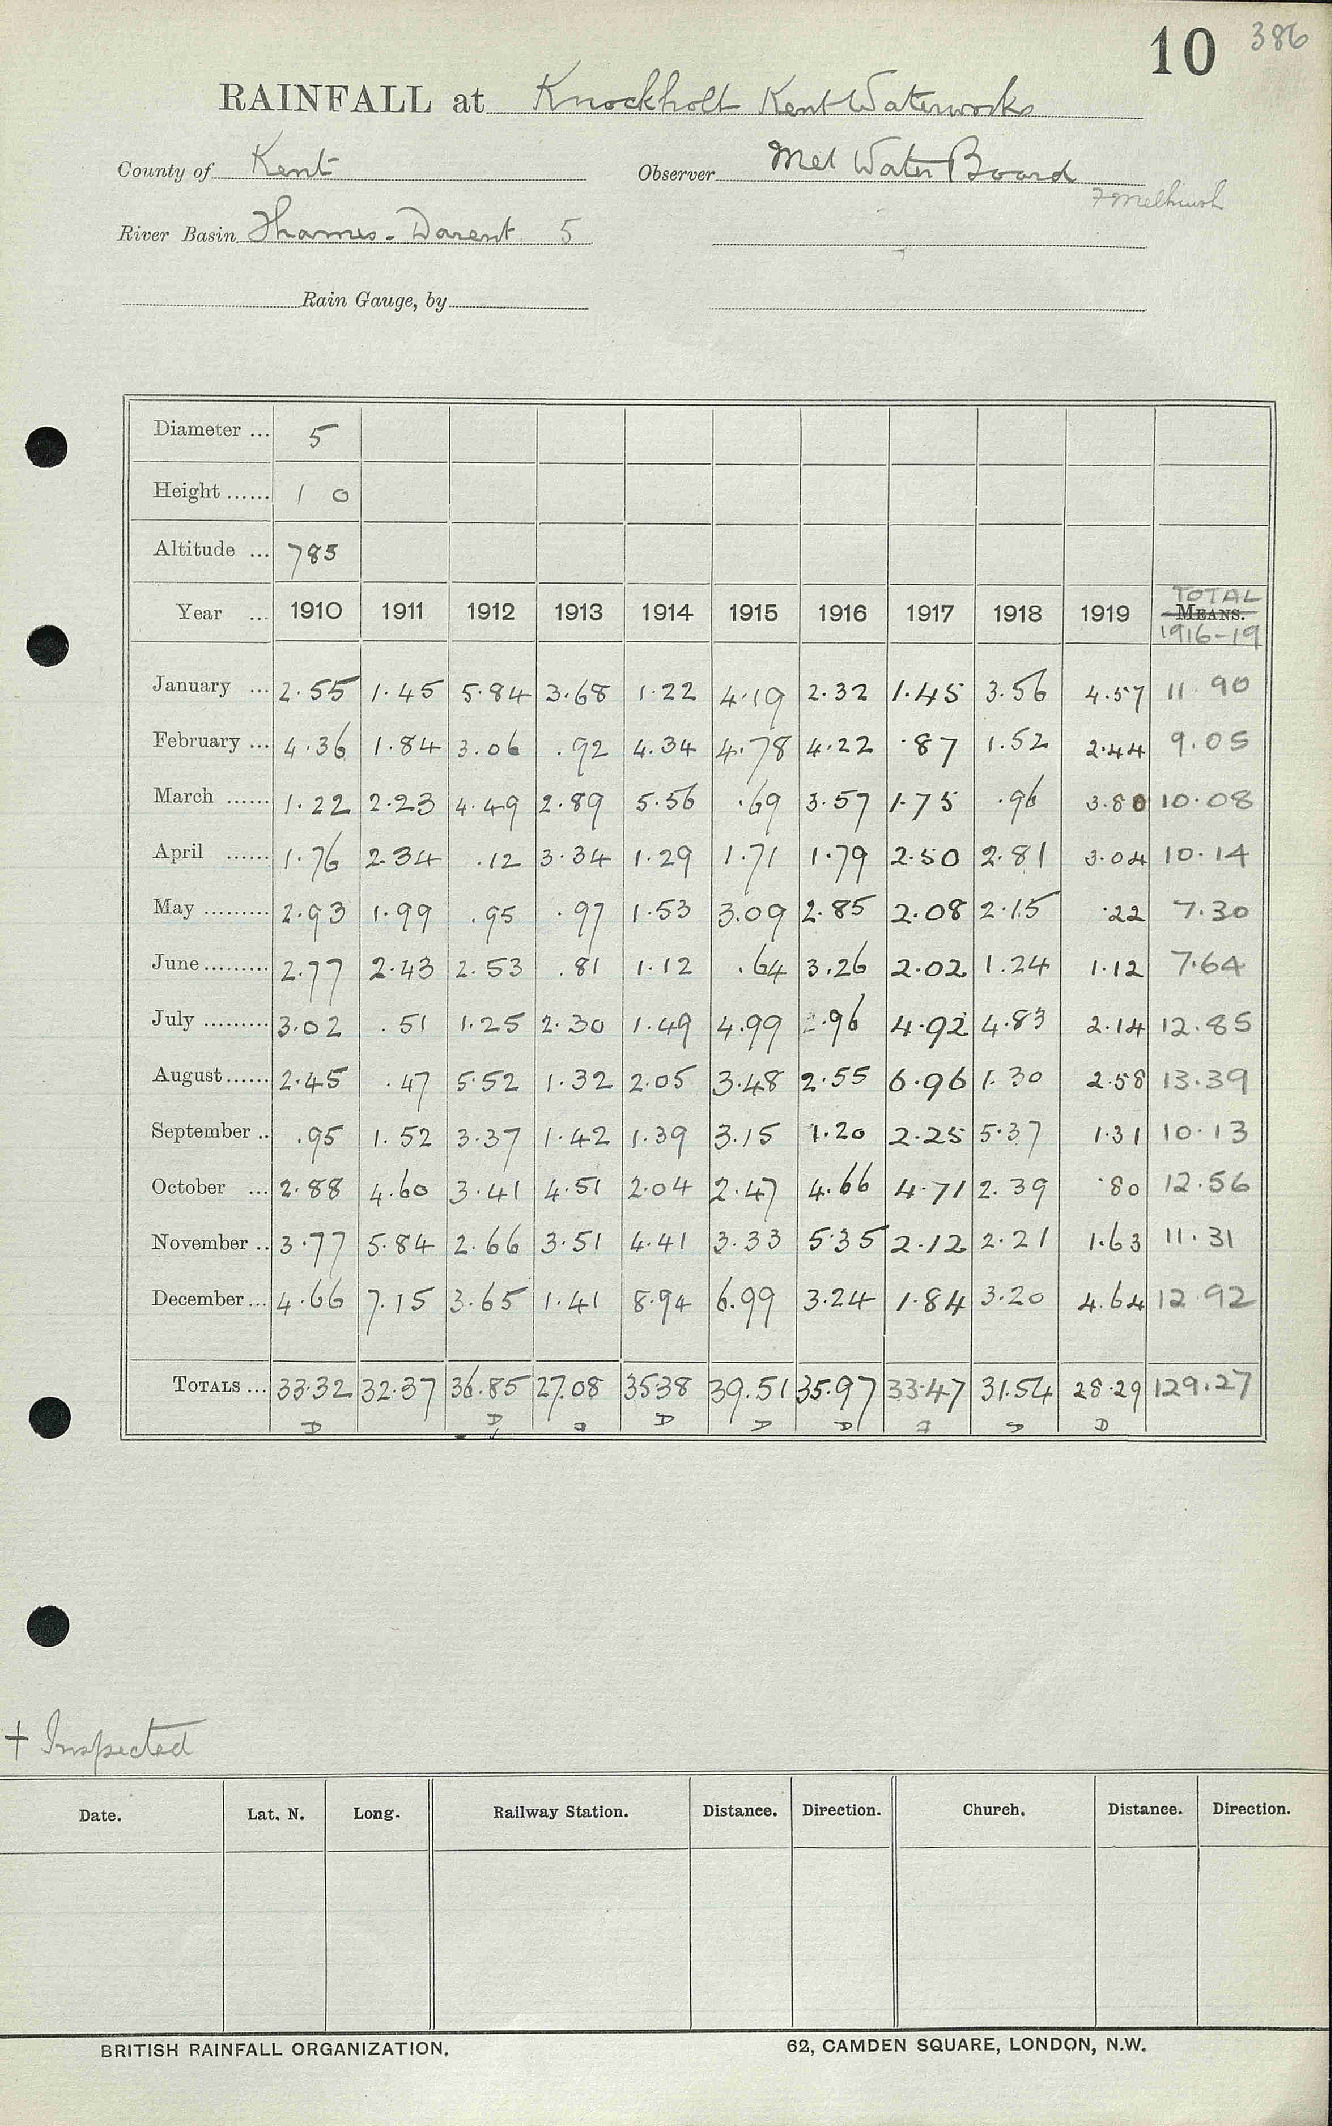 10 386
RAINFALL at Knockholt Kent Waterworks
County of Kent Observer Met Water Board
F Melhuish
River Basin Thames - Darent 5
Rain Gauge, by
Diameter ... 5
Height ...... 1 0
Altitude ... 785
TOTAL
Year ... 1910 1911 1912 1913 1914 1915 1916 1917 1918 1919 MEANS.
1916-19
January ... 2.55 1.45 5.84 3.68 1.22 4.19 2.32 1.45 3.56 4.57 11.90
February ... 4.36 1.84 3.06 .92 4.34 4.78 4.22 .87 1.52 2.44 9.05
March ...... 1.22 2.23 4.49 2.89 5.56 .69 3.57 1.75 .96 3.80 10.08
April ...... 1.76 2.34 .12 3.34 1.29 1.71 1.79 2.50 2.81 3.04 10.14
May ......... 2.93 1.99 .95 .97 1.53 3.09 2.85 2.08 2.15 .22 7.30
June ......... 2.77 2.43 2.53 .81 1.12 .64 3.26 2.02 1.24 1.12 7.64
July ......... 3.02 .51 1.25 2.30 1.49 4.99 .96 4.92 4.83 2.14 12.85
August ...... 2.45 .47 5.52 1.32 2.05 3.48 2.55 6.96 1.30 2.58 13.39
September .. .95 1.52 3.37 1.42 1.39 3.15 1.20 2.25 5.37 1.31 10.13
October ... 2.88 4.60 3.41 4.51 2.04 2.47 4.66 4.71 2.39 .80 12.56
November .. 3.77 5.84 2.66 3.51 4.41 3.33 5.35 2.12 2.21 1.63 11.31
December ... 4.66 7.15 3.65 1.41 8.94 6.99 3.24 1.84 3.20 4.64 12.92
TOTALS ... 33.32 32.37 36.85 27.08 35.38 39.51 35.97 33.47 31.54 28.29 129.27
D D D D D D D
† Inspected
Date. Lat. N. Long. Railway Station. Distance. Direction. Church. Distance. Direction.
BRITISH RAINFALL ORGANIZATION. 62, CAMDEN SQUARE, LONDON, N.W.